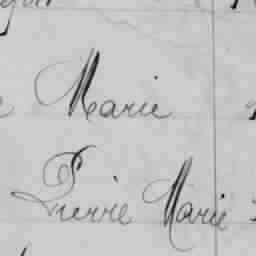 Marie
Pierre Marie